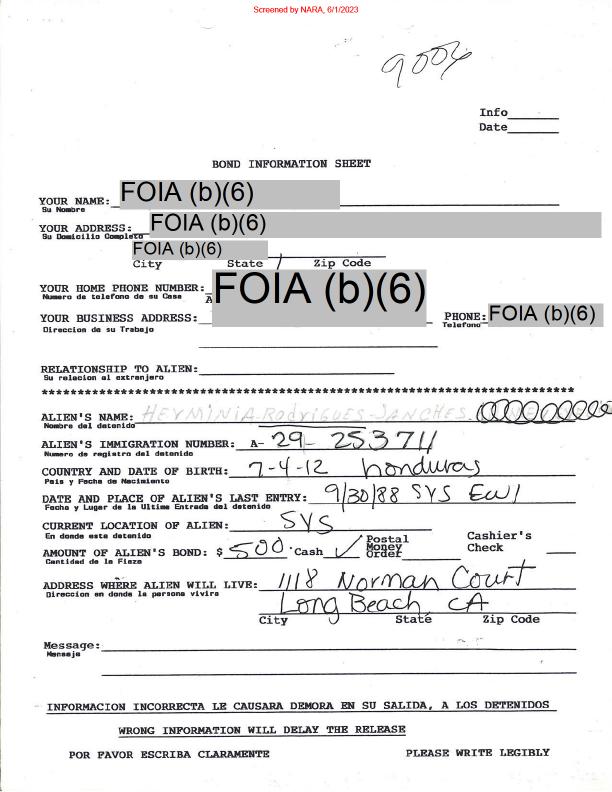 Screened by NARA, 6/1/2023
9006
Info
Date
BOND INFORMATION SHEET
YOUR NAME: FOIA (b)(6)
Su Nombre
YOUR ADDRESS: FOIA (b)(6)
Su Domicilio Completo
FOIA (b)(6)
City State / Zip Code
YOUR HOME PHONE NUMBER: FOIA (b)(6)
Numero de telefono de su Casa A
YOUR BUSINESS ADDRESS: PHONE: FOIA (b)(6)
Direccion de su Trabajo Telefono
RELATIONSHIP TO ALIEN:
Su relacion al extranjero
******************************************************************************
ALIEN'S NAME: HeyMINIA-Rodrigues-JANCHES.
Nombre del detenido
ALIEN'S IMMIGRATION NUMBER: A-29-253711
Numero de registro del detenido
COUNTRY AND DATE OF BIRTH: 7-4-12 honduras
Pais y Fecha de Nacimiento
DATE AND PLACE OF ALIEN'S LAST ENTRY: 9/30/88 SYS EWI
Fecha y Lugar de la Ultima Entrada del detenido
CURRENT LOCATION OF ALIEN: SYS
En donde esta detenido
AMOUNT OF ALIEN'S BOND: $ 500. Cash ✓ Postal Money Order Cashier's Check
Cantidad de la Fieza
ADDRESS WHERE ALIEN WILL LIVE: 1118 Norman Court
Direccion en donde la persona vivira
Long Beach, CA
City State Zip Code
Message:
Mensaje
INFORMACION INCORRECTA LE CAUSARA DEMORA EN SU SALIDA, A LOS DETENIDOS
WRONG INFORMATION WILL DELAY THE RELEASE
POR FAVOR ESCRIBA CLARAMENTE PLEASE WRITE LEGIBLY